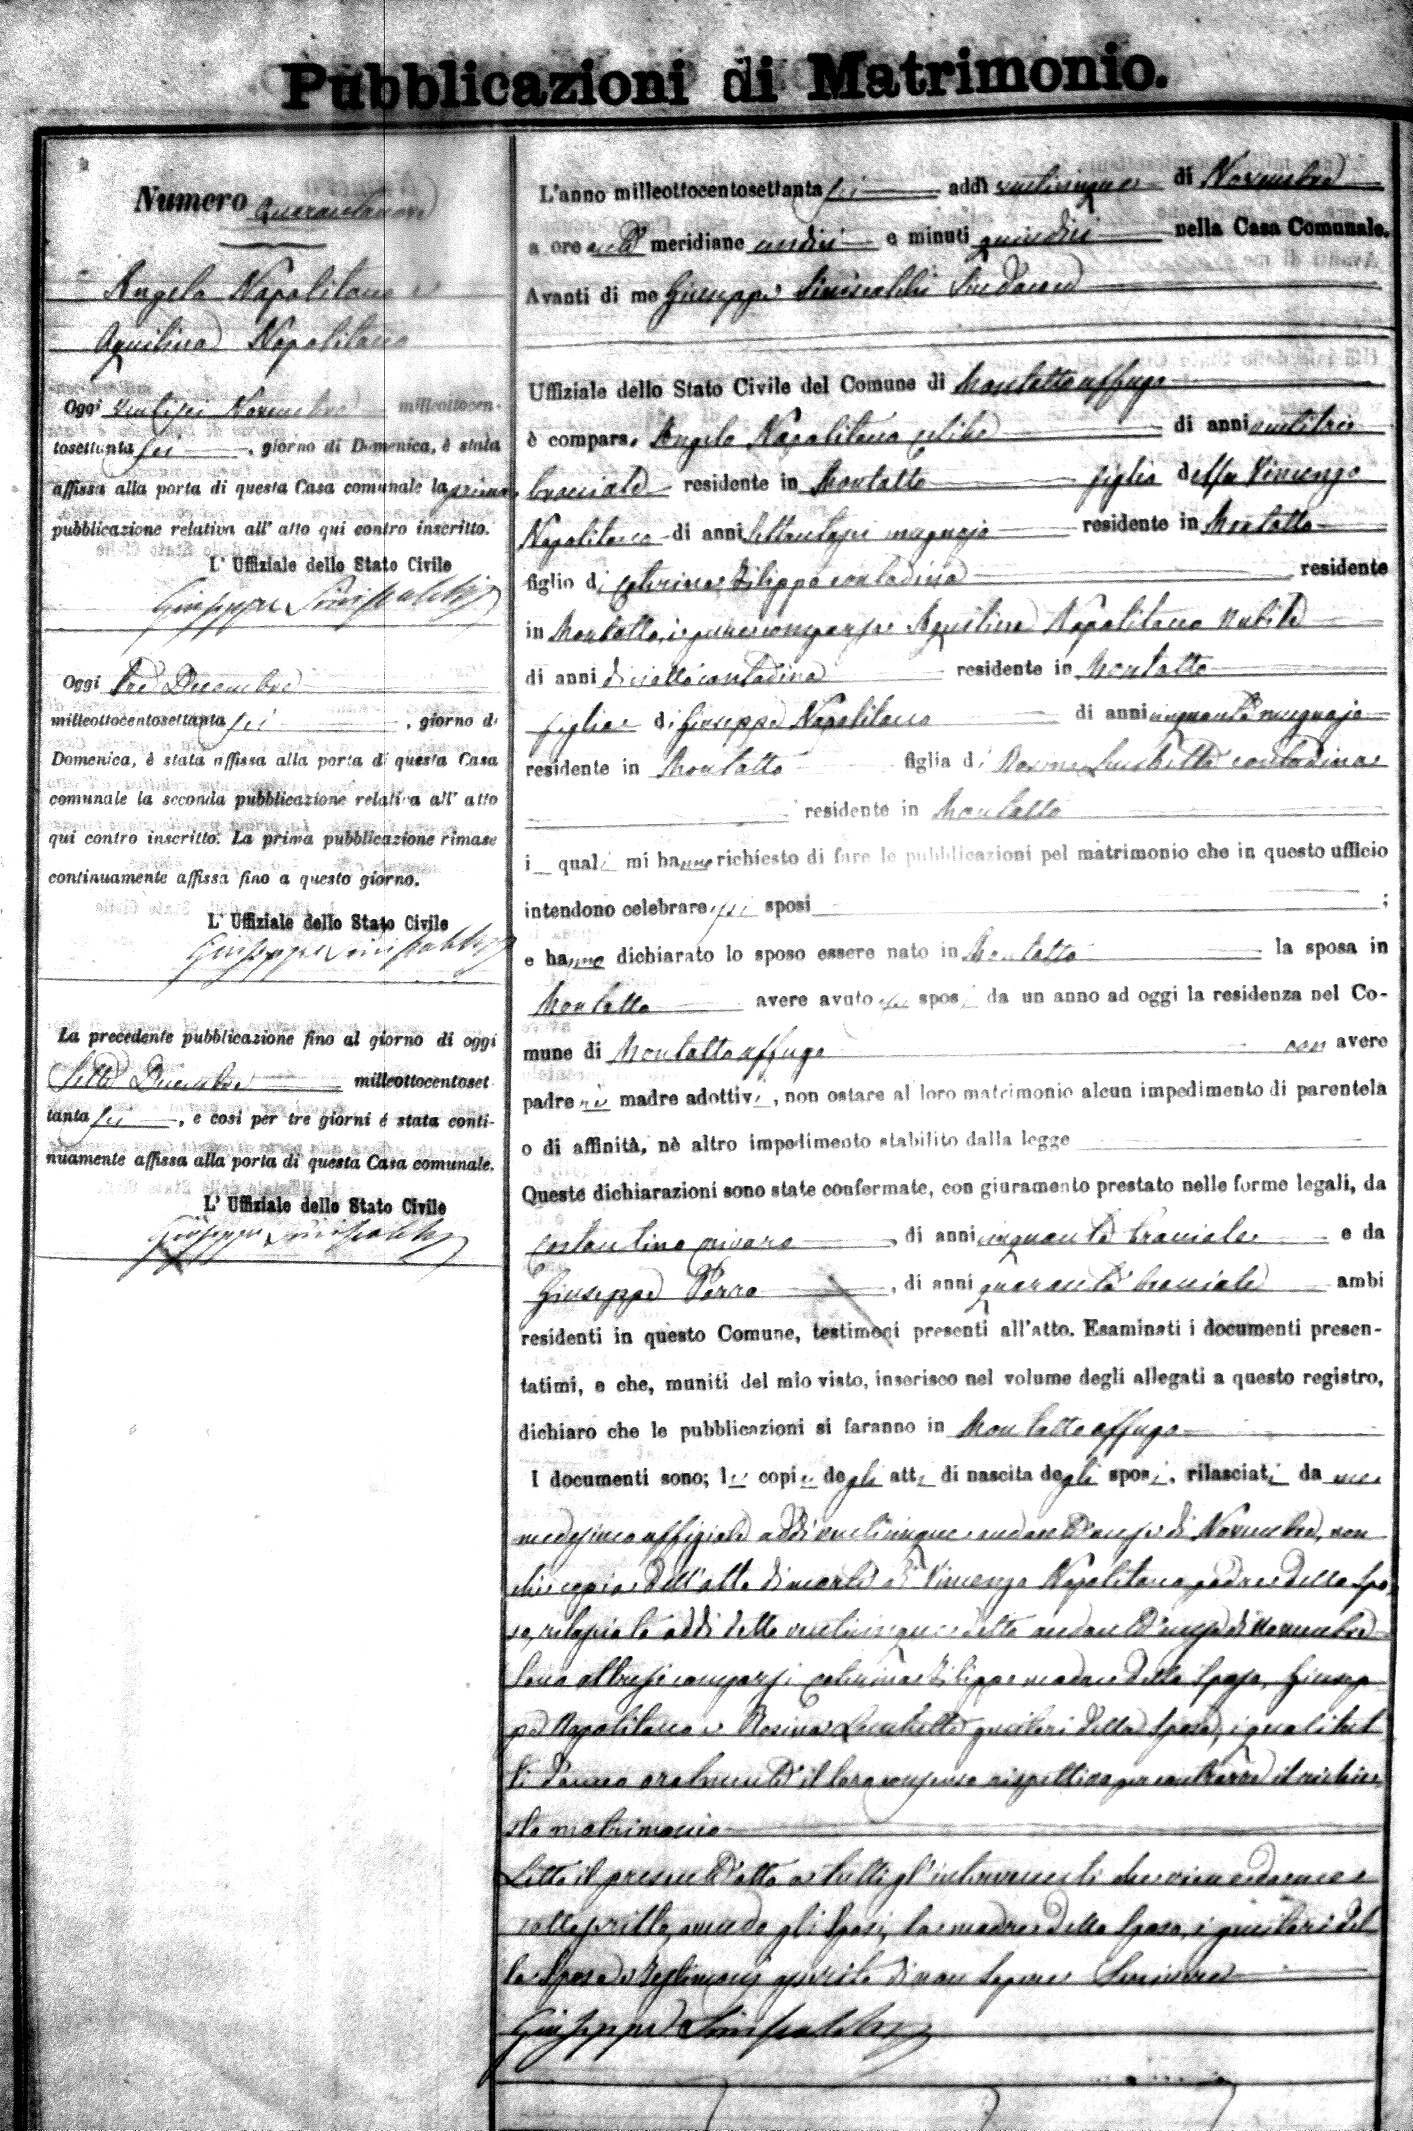 Pubblicazioni di Matrimonio.
Numero Quarantanove
Angelo Napolitano e
Aquilina Napolitano
Oggi ventisei Novembre milleottocen-
tosettanta sei, giorno di Domenica, è stata
affissa alla porta di questa Casa comunale la prima
pubblicazione relativa all' atto qui contro inscritto.
L' Uffiziale dello Stato Civile
Giuseppe Siniscalchi
Oggi tre Decembre
milleottocentosettanta sei, giorno di
Domenica, è stata affissa alla porta di questa Casa
comunale la seconda pubblicazione relativa all' atto
qui contro inscritto. La prima pubblicazione rimase
continuamente affissa fino a questo giorno.
L' Uffiziale dello Stato Civile
Giuseppe Siniscalchi
La precedente pubblicazione fino al giorno di oggi
sette Decembre milleottocentoset
tanta sei, e così per tre giorni é stata conti-
nuamente affissa alla porta di questa Casa comunale.
L' Uffiziale dello Stato Civile
Giuseppe Siniscalchi
L'anno milleottocentosettanta sei addì venticinque di Novembre
a ore anti meridiane undici e minuti quindici nella Casa Comunale.
Avanti di me Giuseppe Siniscalchi Sindaco
Uffiziale dello Stato Civile del Comune di Montaltouffugo
è comparso Angelo Napolitano celibe di anni ventitre
bracciale residente in Montalto figlio del fu Vincenzo
Napolitano di anni settantasei mugnajo residente in Montalto
figlio di Caterina Filippo contadina residente
in Montalto, è pure comparsa Aquilina Napolitano nubile
di anni diciotto contadina residente in Montalto
figlia di Giuseppe Napolitano di anni cinquanta mugnajo
residente in Montalto figlia di Rosina contadina
residente in Montalto
i quali mi hanno richiesto di fare le pubblicazioni pel matrimonio che in questo ufficio
intendono celebrare essi sposi ;
e hanno dichiarato lo sposo essere nato in Montalto la sposa in
Montalto avere avuto essi sposi da un anno ad oggi la residenza nel Co-
mune di Montaltouffugo non avere
padre nè madre adottivi, non ostare al loro matrimonio alcun impedimento di parentela
o di affinità, nè altro impedimento stabilito dalla legge
Queste dichiarazioni sono state confermate, con giuramento prestato nelle forme legali, da
Costantino, di anni cinquanta bracciale e da
Giuseppe Porro, di anni quaranta bracciale ambi
residenti in questo Comune, testimoni presenti all'atto. Esaminati i documenti presen-
tatimi, e che, muniti del mio visto, inserisco nel volume degli allegati a questo registro,
dichiaro che le pubblicazioni si faranno in Montaltouffugo
I documenti sono; le copie degli atti di nascita degli sposi, rilasciati da me
medesimo uffiziale addì venticinque andante mese di Novembre, non
chè copia dell'atto di morte di Vincenzo Napolitano padre dello spo
so, rilasciato addì detto venticinque detto andante mese di Novembre
Sono altresì comparsi Caterina Filippo madre dello Sposo, Giusep
pe Napolitano e Rosina genitori della Sposa, i quali tut
ti danno oralmente il loro consenso rispettivo per contrarre il richie
sto matrimonio
Letto il presente atto a tutti gl'intervenuti che viene da me
sottoscritto, avendo gli Sposi, la madre dello Sposo, i genitori del
la Sposa e testimonj asserito di non sapere Scrivere
Giuseppe Siniscalchi